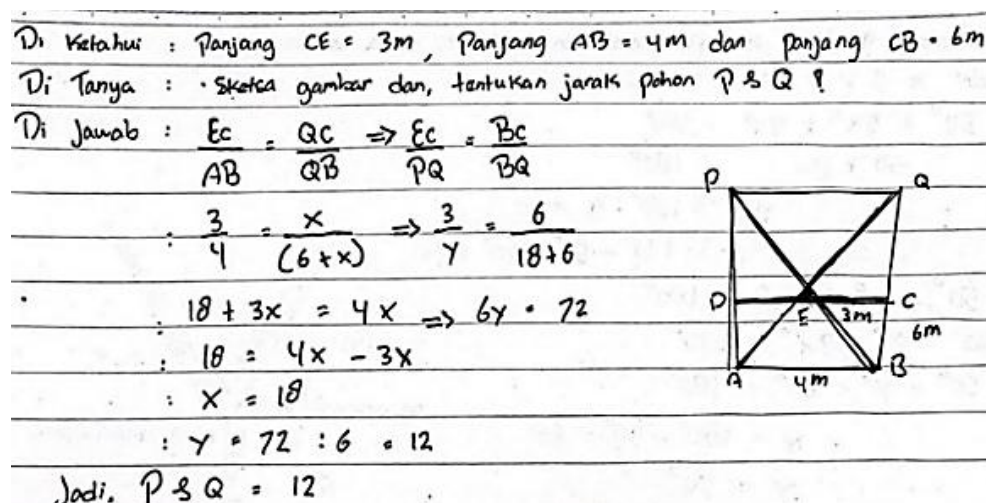 Di Ketahui : Panjang CE = 3m, Panjang AB = 4m dan panjang CB = 6m
Di Tanya : • Sketsa gambar dan, tentukan jarak pohon P & Q ?
Di Jawab : EC/AB = QC/QB => EC/PQ = BC/BQ
: 3/4 = x/(6+x) => 3/y = 6/18+6
: 18 + 3x = 4x => 6y = 72
: 18 = 4x - 3x
: x = 18
: y = 72 : 6 = 12
Jadi, P & Q = 12
P Q
D E 3m C
6m
A 4m B